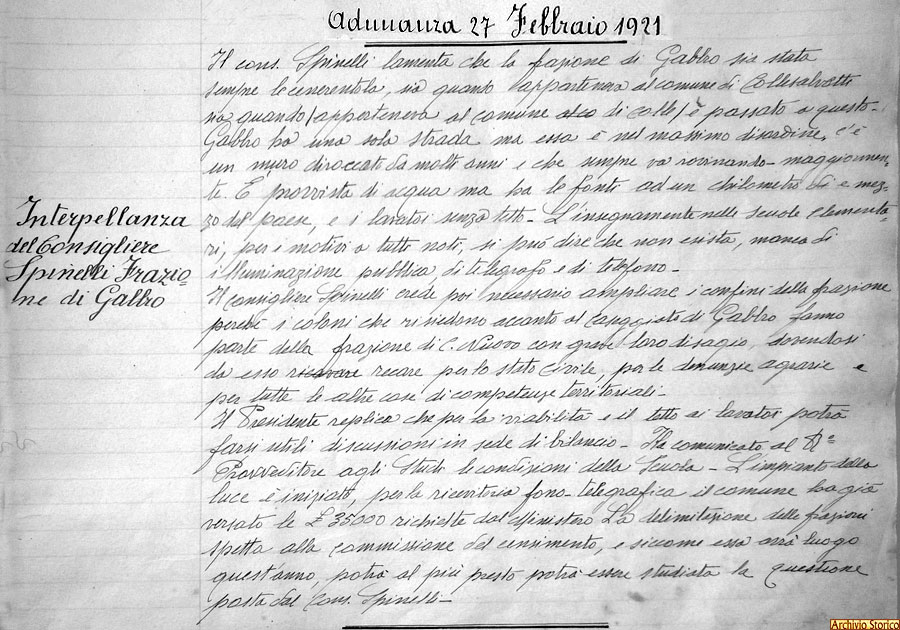 Adunanza 27 Febbraio 1921
Interpellanza
del Consigliere
Spinelli Frazio-
ne di Gabbro
Il cons. Spinelli lamenta che la frazione di Gabbro sia stata
sempre la cenerentola, sia quando apparteneva al comune di Collesalvetti
sia quando (apparteneva al comune di Colle) è passato a questo-
Gabbro ha una sola strada ma essa è nel massimo disordine, c'è
un muro diroccato da molti anni e che sempre va rovinando maggiormen-
te. È provvista di acqua ma ha le fonti ad un chilometro e mez-
zo dal paese, e i lavatoi senza tetto - L'insegnamento nelle scuole elementa-
ri, per i motivi a tutti noti, si può dire che non esista, manca di
illuminazione pubblica, di telegrafo e di telefono -
Il consigliere Spinelli crede poi necessario ampliare i confini della frazione
perché i coloni che risiedono accanto al caseggiato di Gabbro fanno
parte della frazione di C. Nuovo con grave loro disagio, dovendosi
da esso ricavare recare per lo stato civile, per le denunzie agrarie e
per tutte le altre cose di competenza territoriali -
Il Presidente replica che per la viabilità e il tetto ai lavatoi potrà
farsi utili discussioni in sede di bilancio - Ha comunicato al R°
Provveditore agli Studi le condizioni della Scuola - L'impianto della
luce è iniziato, per la ricevitoria fono-telegrafica il comune ha già
versato le £ 35000 richieste dal Ministero La delimitazione delle frazioni
spetta alla commissione del censimento, e siccome essa avrà luogo
quest'anno, potrà al più presto potrà essere studiata la questione
posta dal Cons. Spinelli -
Archivio Storico